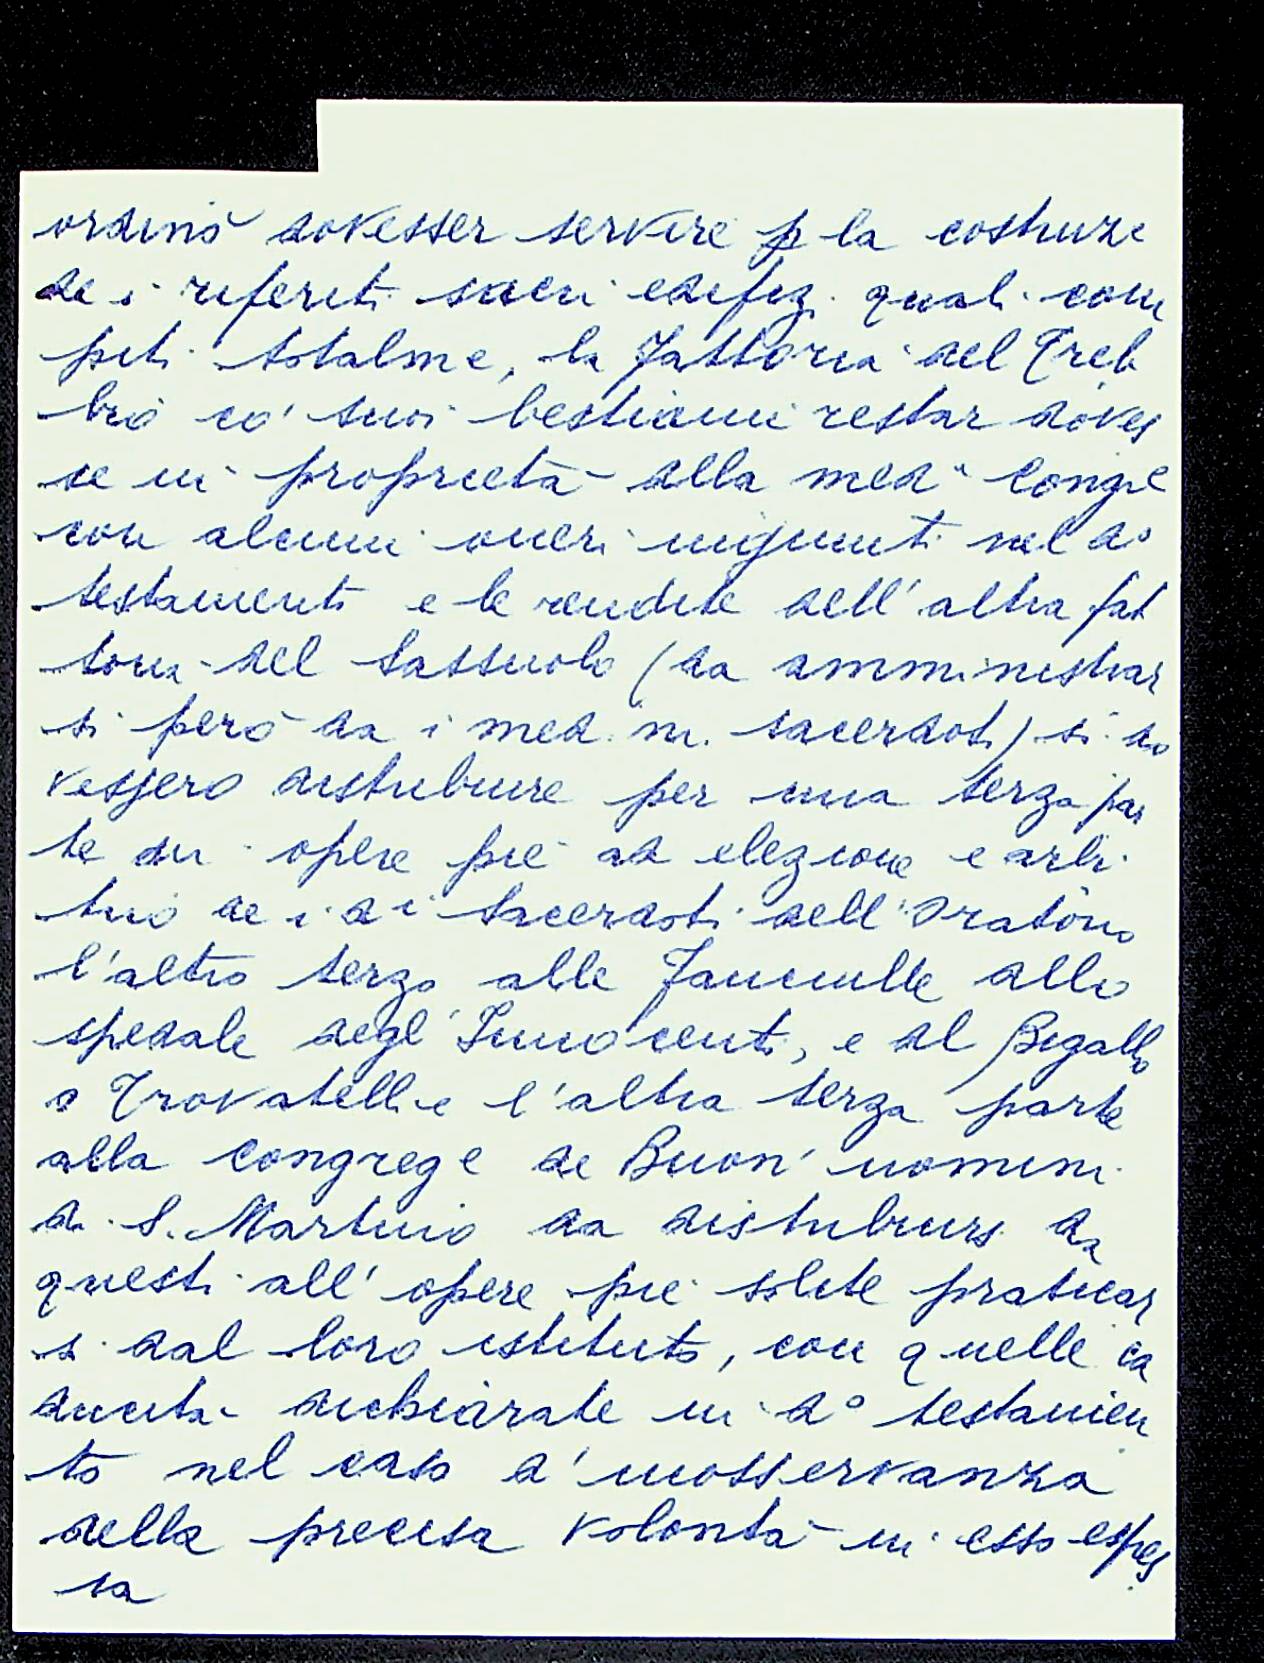 ordinò dovesser servire p la costruze
de i riferiti sacri edifizi quali com
piti totalme, la Fattoria del Treb
bio co' suoi bestiami restar doves
se in proprietà alla meda Conge
con alcuni oneri ingiunti nel do
testamento e le rendite dell' altra fat
toria del Sassuolo (da amministrar
si però da i med.mi sacerdoti) si do
vessero distribuire per una terza par
te in opere pie ad elezione e arbi
trio de i di Sacerdoti dell' Oratorio
l'altro terzo alle Fanciulle allo
spedale degl' Innocenti, e al Bigallo
o Trovatelli e l'altra terza parte
alla congrege de Buon' uomini
di S. Martino da distribuirsi da
questi all' opere pie solite praticar
si dal loro istituto, con quelle ca
ducità dichiarate in do testamen
to nel caso d' inosservanza
della precisa volontà in esso espres
sa